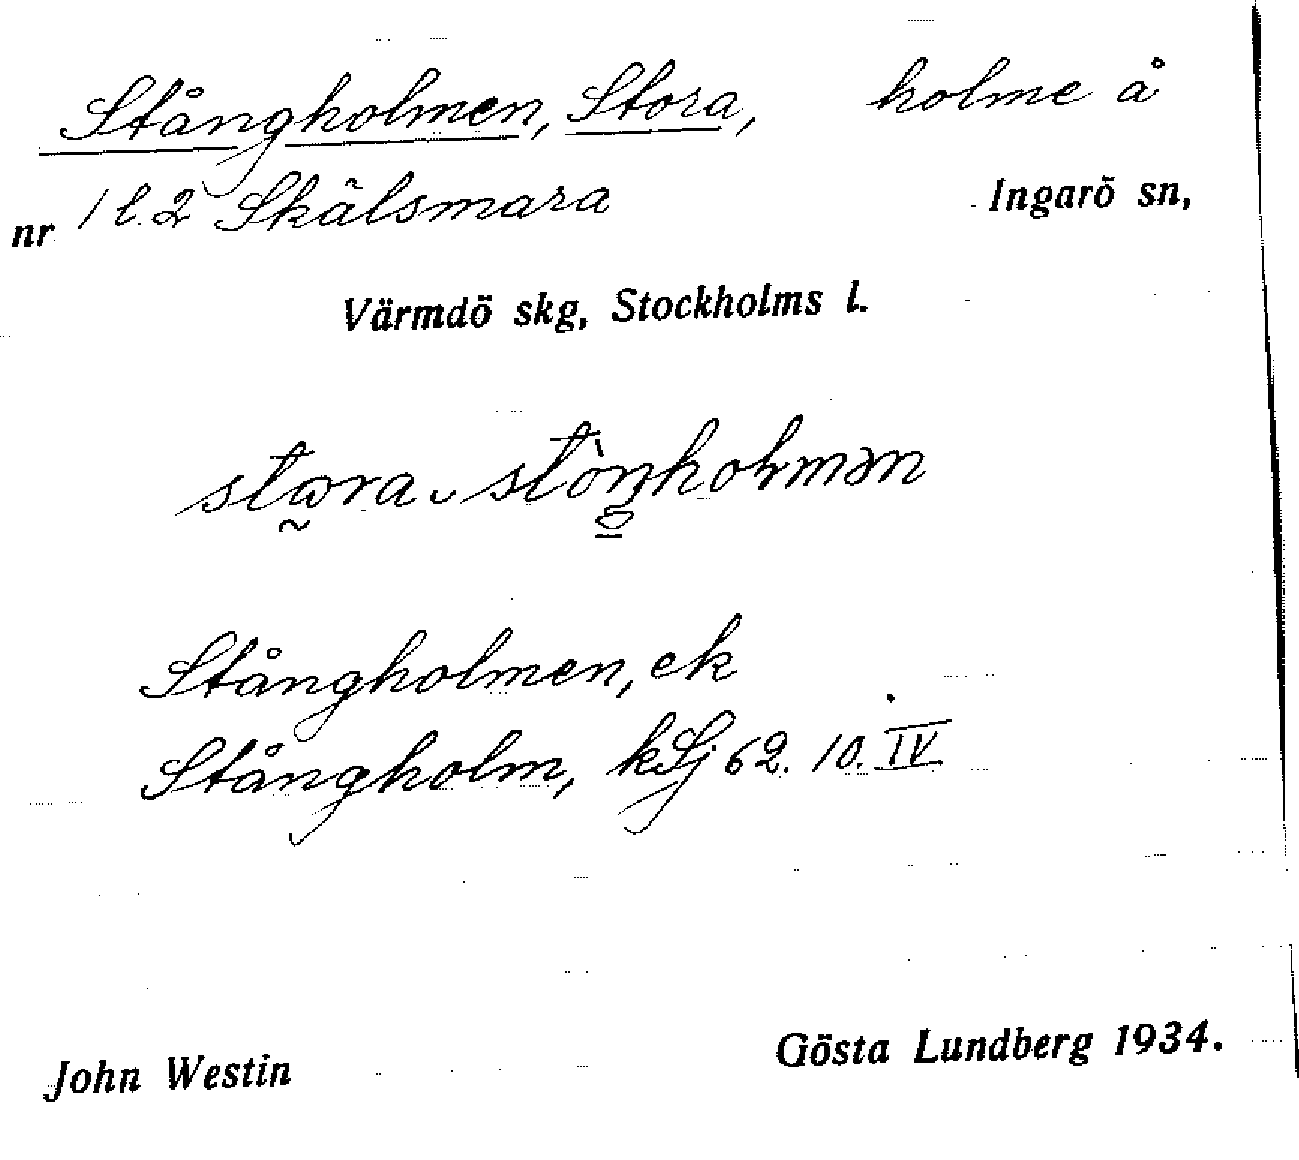 Stångholmen, Stora, holme å
nr 1 l. 2 Skälsmara Ingarö sn,
Värmdö skg, Stockholms l.
stɷra ᴗ stòŋholmən
Stångholmen, ek
Stångholm, kSj 62. 10. IV
John Westin Gösta Lundberg 1934.